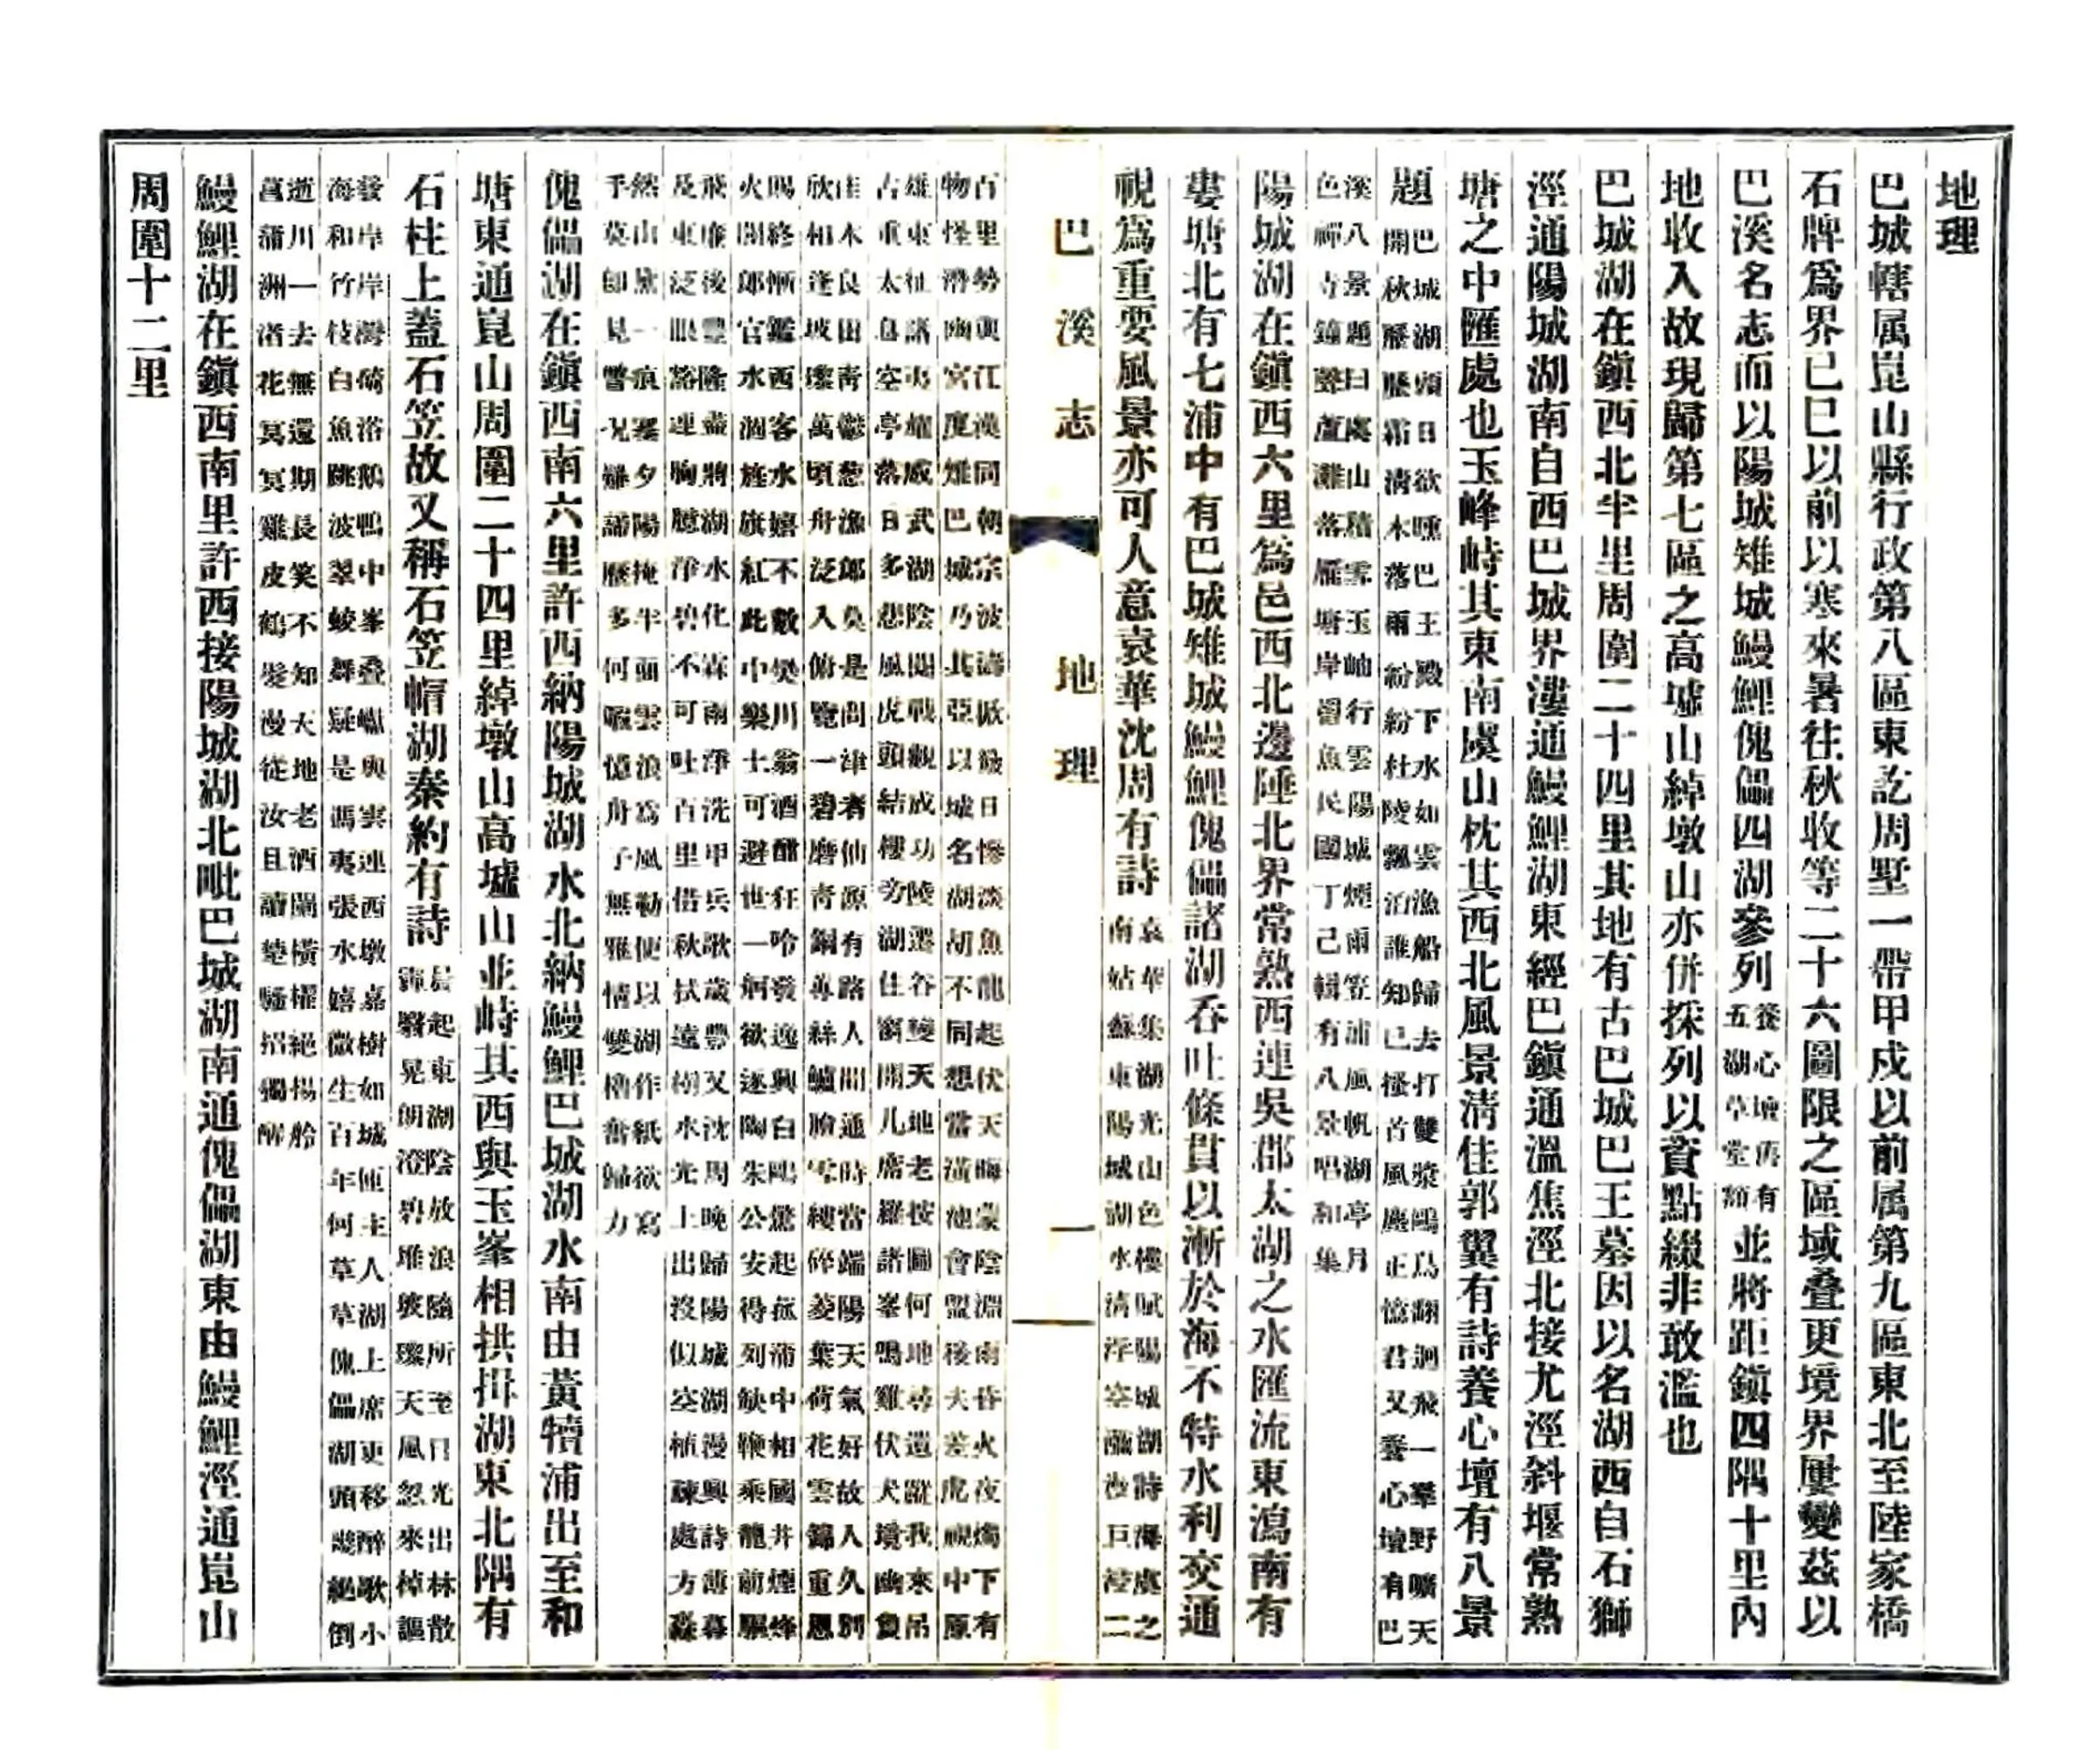 地理
巴城轄属崑山縣行政第八區東訖周墅一帶甲戍以前属第九區東北至陸家橋
石牌爲界已巳以前以寒來暑往秋收等二十六圖限之區域叠更境界屢變茲以
巴溪名志而以陽城雉城鰻鯉傀儡四湖參列養心壇舊有五湖草堂額並將距鎭四隅十里內
地收入故現歸第七區之高墟山綽墩山亦併採列以資點綴非敢濫也
巴城湖在鎭西北半里周圍二十四里其地有古巴城巴王墓因以名湖西自石獅
涇通陽城湖南自西巴城界漊通鰻鯉湖東經巴鎭通溫焦涇北接尤涇斜堰常熟
塘之中匯處也玉峰峙其東南虞山枕其西北風景淸佳郭翼有詩養心壇有八景
題巴城湖頭日欲曛巴王殿下水如雲漁船歸去打雙漿鷗鳥翩迴飛一羣野曠天
開秋歷歷霜淸木落雨紛紛杜陵飄泊誰知己搔首風塵正憶君又養心壇有巴
溪八景題曰虞山積雪玉岫行雲陽城煙雨笠浦風帆湖亭月
色禪寺鐘聲蘆灘落雁塘岸罾魚民國丁己輯有八景唱和集
陽城湖在鎭西六里爲邑西北邊陲北界常熟西連吳郡太湖之水匯流東瀉南有
婁塘北有七浦中有巴城雉城鰻鯉傀儡諸湖吞吐條貫以漸於海不特水利交通
視爲重要風景亦可人意袁華沈周有詩袁華集湖光山色樓賦陽城湖詩海虞之
南姑蘇東陽城湖水淸浮空瀰沙巨浸二
巴溪志 地理 一
百里勢與江漢同朝宗波濤噉礮日慘淡魚龍起伏天晦蒙陰淵雨昏火夜燭下有
物怪潛幽宮度雉巴城乃其亞以城名湖胡不同想當潢池會盟後大差虎視中原
雄東征諸夷耀威武湖陰閱戰觀成功陵遷谷變天地老按圖何地尋遺蹤我來吊
古重太息空亭落日多悲風虎頭結樓旁湖住窗開几席羅諸峯鳴雞伏犬境幽負
佳木良田靑鬱葱漁郎奐是問津者仙源有路人間通時當端陽天氣好故人久別
欣相逢坡瓈萬頃舟泛入俯覽一碧磨靑銅蓴絲鱸膾雪縷碎菱葉荷花雲錦重恩
賜終慚鑑西客水嬉不數樊川翁酒酣狂吟發逸興白鷗驚起菰蒲中相國井煙烽
火閣郎官水涸旌旗紅此中樂土可避世一舸欲逐陶朱公安得列缺鞭乘龍前驅
飛廉後豐隆盡將湖水化霖雨凈洗甲兵歌歲豐又沈周晚歸陽城湖漫興詩薄暮
及東泛眼豁連胸臆淨碧不可吐百里借秋拭遠樹水光上出沒似空植疎處方淼
然山黛一痕塞夕陽掩半面雲浪寫風勒便以湖作紙欲寫
手莫卽見瞥況雉謡歷多何暇憶舟子無雅情雙櫓奮歸力
傀儡湖在鎭西南六里許西納陽城湖水北納鰻鯉巴城湖水南由黃犢浦出至和
塘東通崑山周圍二十四里綽墩山高墟山並峙其西與玉峯相拱揖湖東北隅有
石柱上蓋石笠故又稱石笠帽湖秦約有詩晨起東湖陰放浪隨所至日光出林散
靄翳晃朗澄碧堆玻瓈天風忽來棹謳
發岸岸灣碕浴鵝鴨中峯叠巘與雲連西墩嘉樹如城厓主人湖上席更移醉歌小
海和竹枝白魚跳波翠蛟舞疑是馮夷張水嬉微生百年何草草傀儡湖頭幾絕倒
逝川一去無還期長笑不知天地老酒闌橫櫂絕揚舲
菖蒲洲渚花冥冥雞皮鶴髮漫從汝且讀楚騷招獨醉
鰻鯉湖在鎭西南里許西接陽城湖北毗巴城湖南通傀儡湖東由鰻鯉涇通崑山
周圍十二里